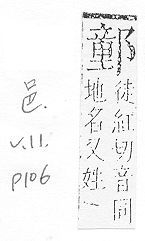 ⿰童阝
徒紅切音同
地名又姓一
邑.
v.11.
p106